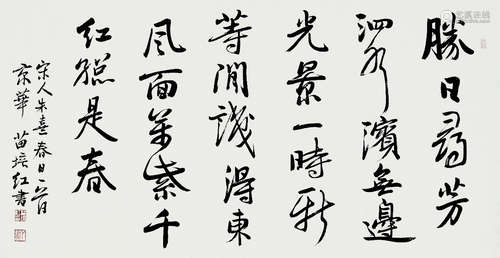 勝日尋芳
泗水濱無邊
光景一時新
等閒識得東
風面萬紫千
紅總是春
宋人朱熹春日一首
京華 苗培红書